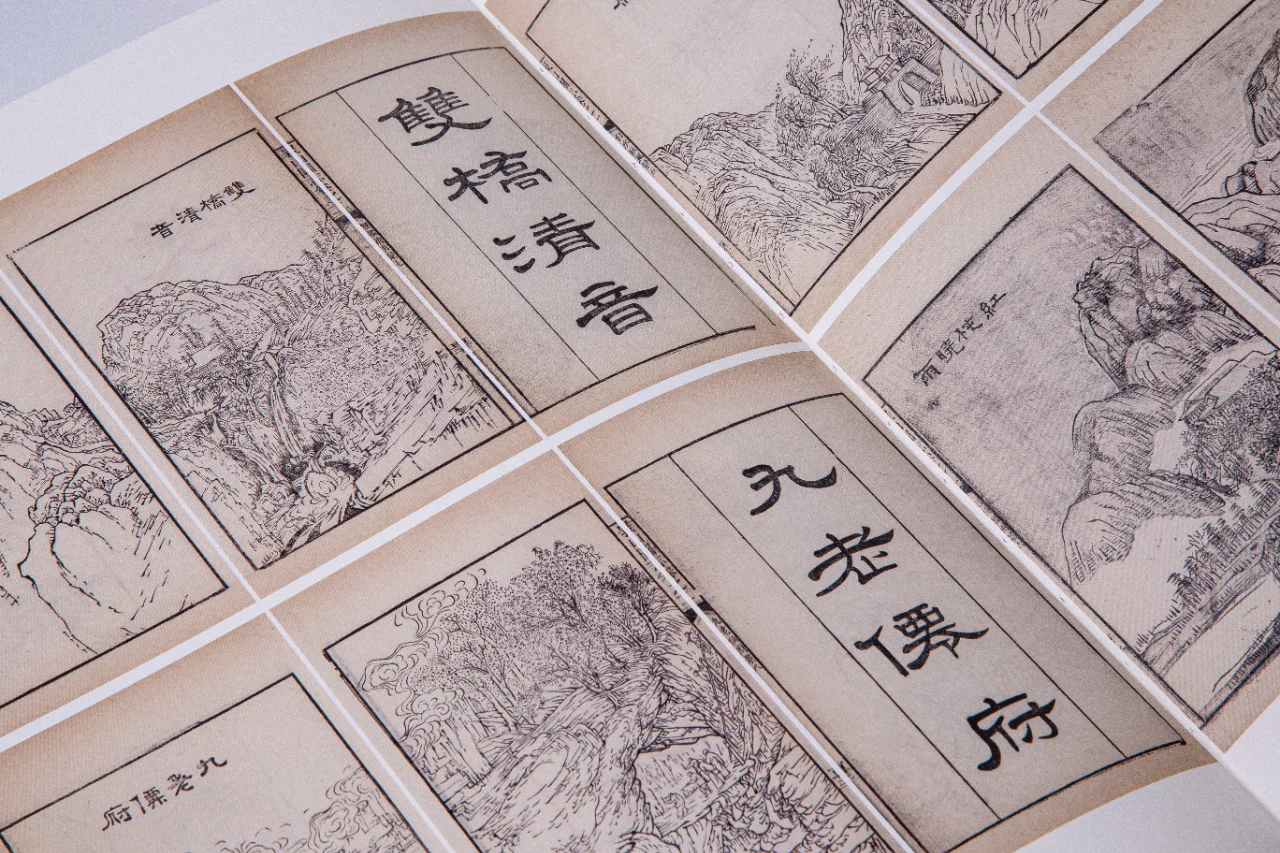 雙橋清音
雙橋清音
九老僊府
九老僊府
紅椿曉雨